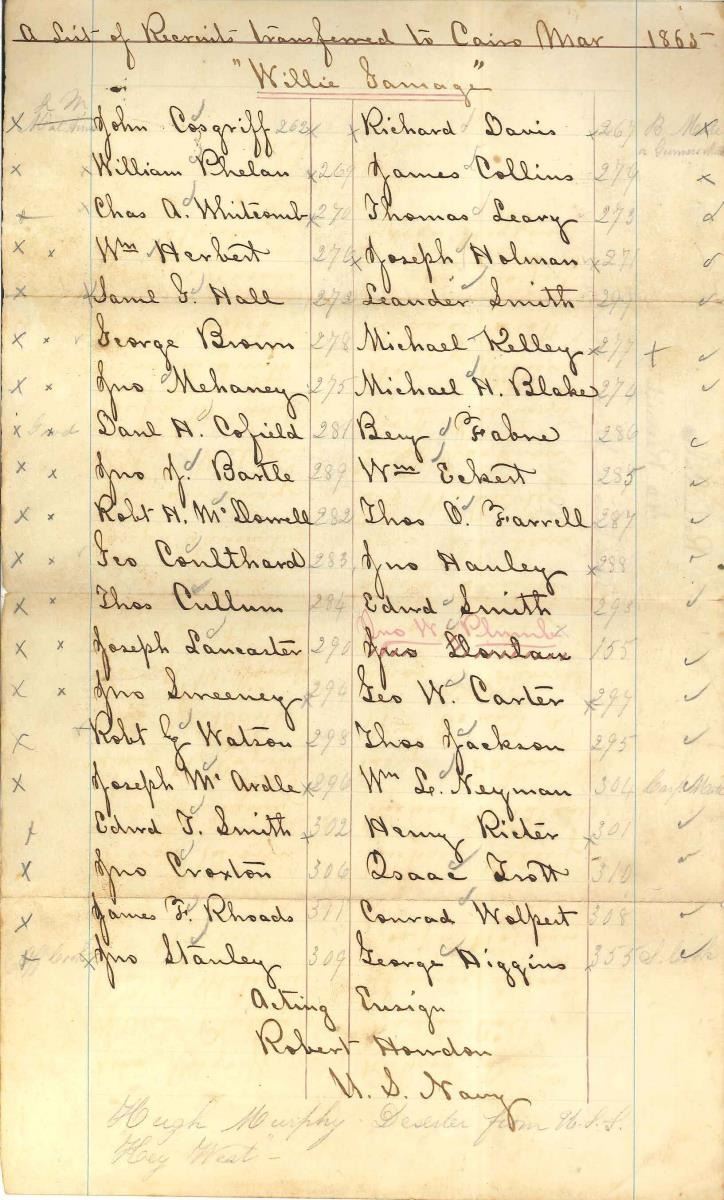 A List of Recruits transferred to Cairo Mar 1865
"Willie Gamage"
John Cosgriff 262 Richard Davis 267
William Phelan 269 James Collins 279
Chas A. Whitcomb 270 Thomas Leary 273
Wm Herbert 276 Joseph Holman 271
Saml G. Hall 272 Leander Smith 297
George Brown 278 Michael Kelley 277
Jno Mehaney 275 Michael H. Blake 274
Good Danl H. Cofield 281 Benj Fabne 286
Jno J. Bartle 289 Wm Eckert 285
Robt H. McDowell 282 Thos O. Farrell 287
Geo Coulthard 283 Jno Hanley 288
Thos Cullum 284 Edwd Smith 293
Jno W. Plumb
Joseph Lancaster 290 Jno Donlan 155
Jno Sweeney 294 Geo W. Carter 297
Robt Watson 298 Thos Jackson 295
Joseph McArdle 296 Wm L. Neyman 304 Carp Mate
Edwd T. Smith 302 Henry Rieter 301
Jno Croxton 306 Isaac Trott 310
James F. Rhoads 311 Conrad Wolpert 308
Jno Stanley 309 George Higgins 355 S. Cook
Acting Ensign
Robert Howdon
U. S. Navy
Hugh Murphy Deserter from U.S.S.
Key West"